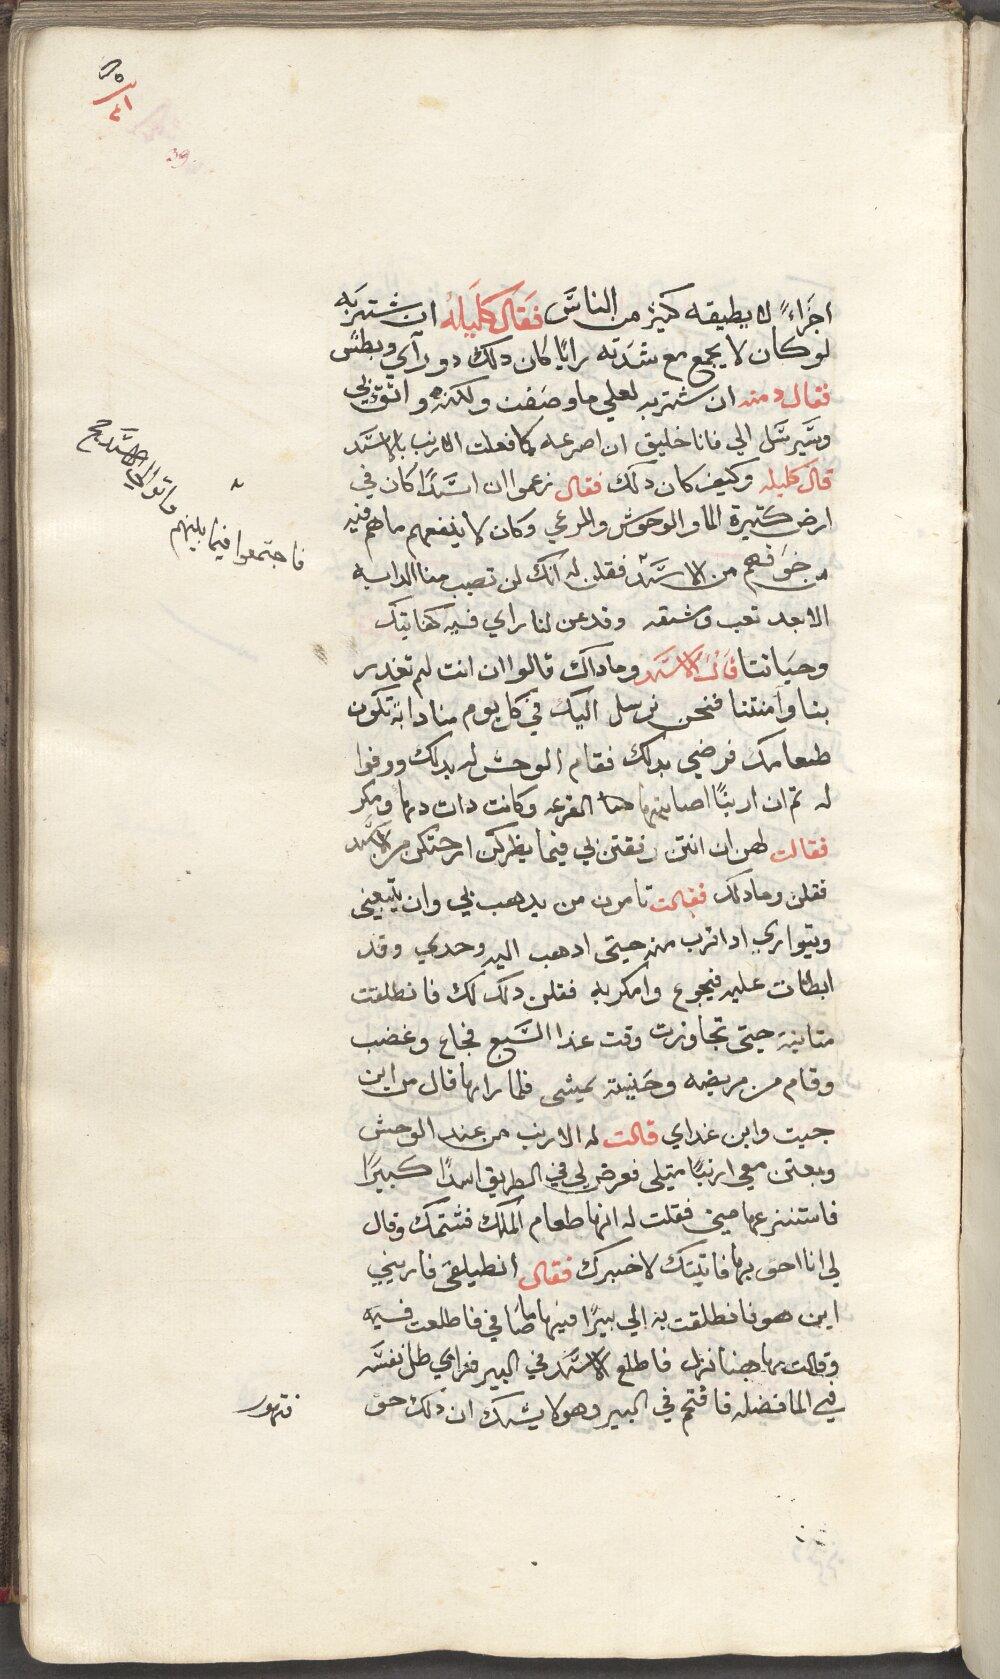 اجزاءً لا يطيقه كثير من الناس فقال كليله ان شتربه
لو كان لا يجمع مع شدته رايًا كان دلك دو رآي وبطش
فقال دمنه ان شتربه لعلي ما وصفت ولكنه واثق بي
وسيرسل الي فانا خليق ان اصرعه كما فعلت الارنب بالاسد
قال كليله وكيف كان دلك فقال زعموا ان اسدًا كان في
ارض كتيرة الما والوحوش والمرعي وكان لا ينفعهم ما هم فيه
من خوفهم من الاسد فقلن له انك لن تصب منا الدابه
الا بعد تعب ومشقه وقد عن لنا راي فيه كفايتك
وحياتنا قال الاسد وما داك قالوا ان انت لم تغدر
بنا وآمنتنا فنحن نرسل اليك في كل يوم منا دابة تكون
طعامك فرضي بدلك فقام الوحش له بدلك ووفوا
له تم ان ارنبًا اصابتها القرعه وكانت دات دها ومكر
فقالت لهن ان انتن رفقتن بي فيما يظركن ارحتكن من الاسد
فقلن وما دلك فقالت تامرن من يدهب بي وان يتبعني
ويتواري ادا قرب منه حيتى ادهب اليه وحدي وقد
ابطات عليه فيجوع وامكر به فقلن دلك لك فانطلقت
متانية حيتى تجاوزت وقت غدا السبع فجاع وغضب
وقام من مربضه وحنيته يمشي فلما راها قال من اين
جيت واين غداي قالت له الارنب من عند الوحش
وبعتن معي ارنبًا متيلي فعرض لي في الطريق اسدًا كبيرًا
فاستنزعها مني فقلت له انها طعام الملك فشتمك وقال
لي انا احق بها فاتيتك لاخبرك فقال انطيلقى فاريني
اين هو فانطلقت به الي بيرًا فيها ما صافي فاطلعت فيه
وقالت هاهنا نزل فاطلع الاسد في البير فراي ظل نفسه
في الما فضله فاقتحم في البير وهو لا يشك ان دلك حق
فاجتمعوا فيما بينهم فاتوا الي الاسد صح
فتهور